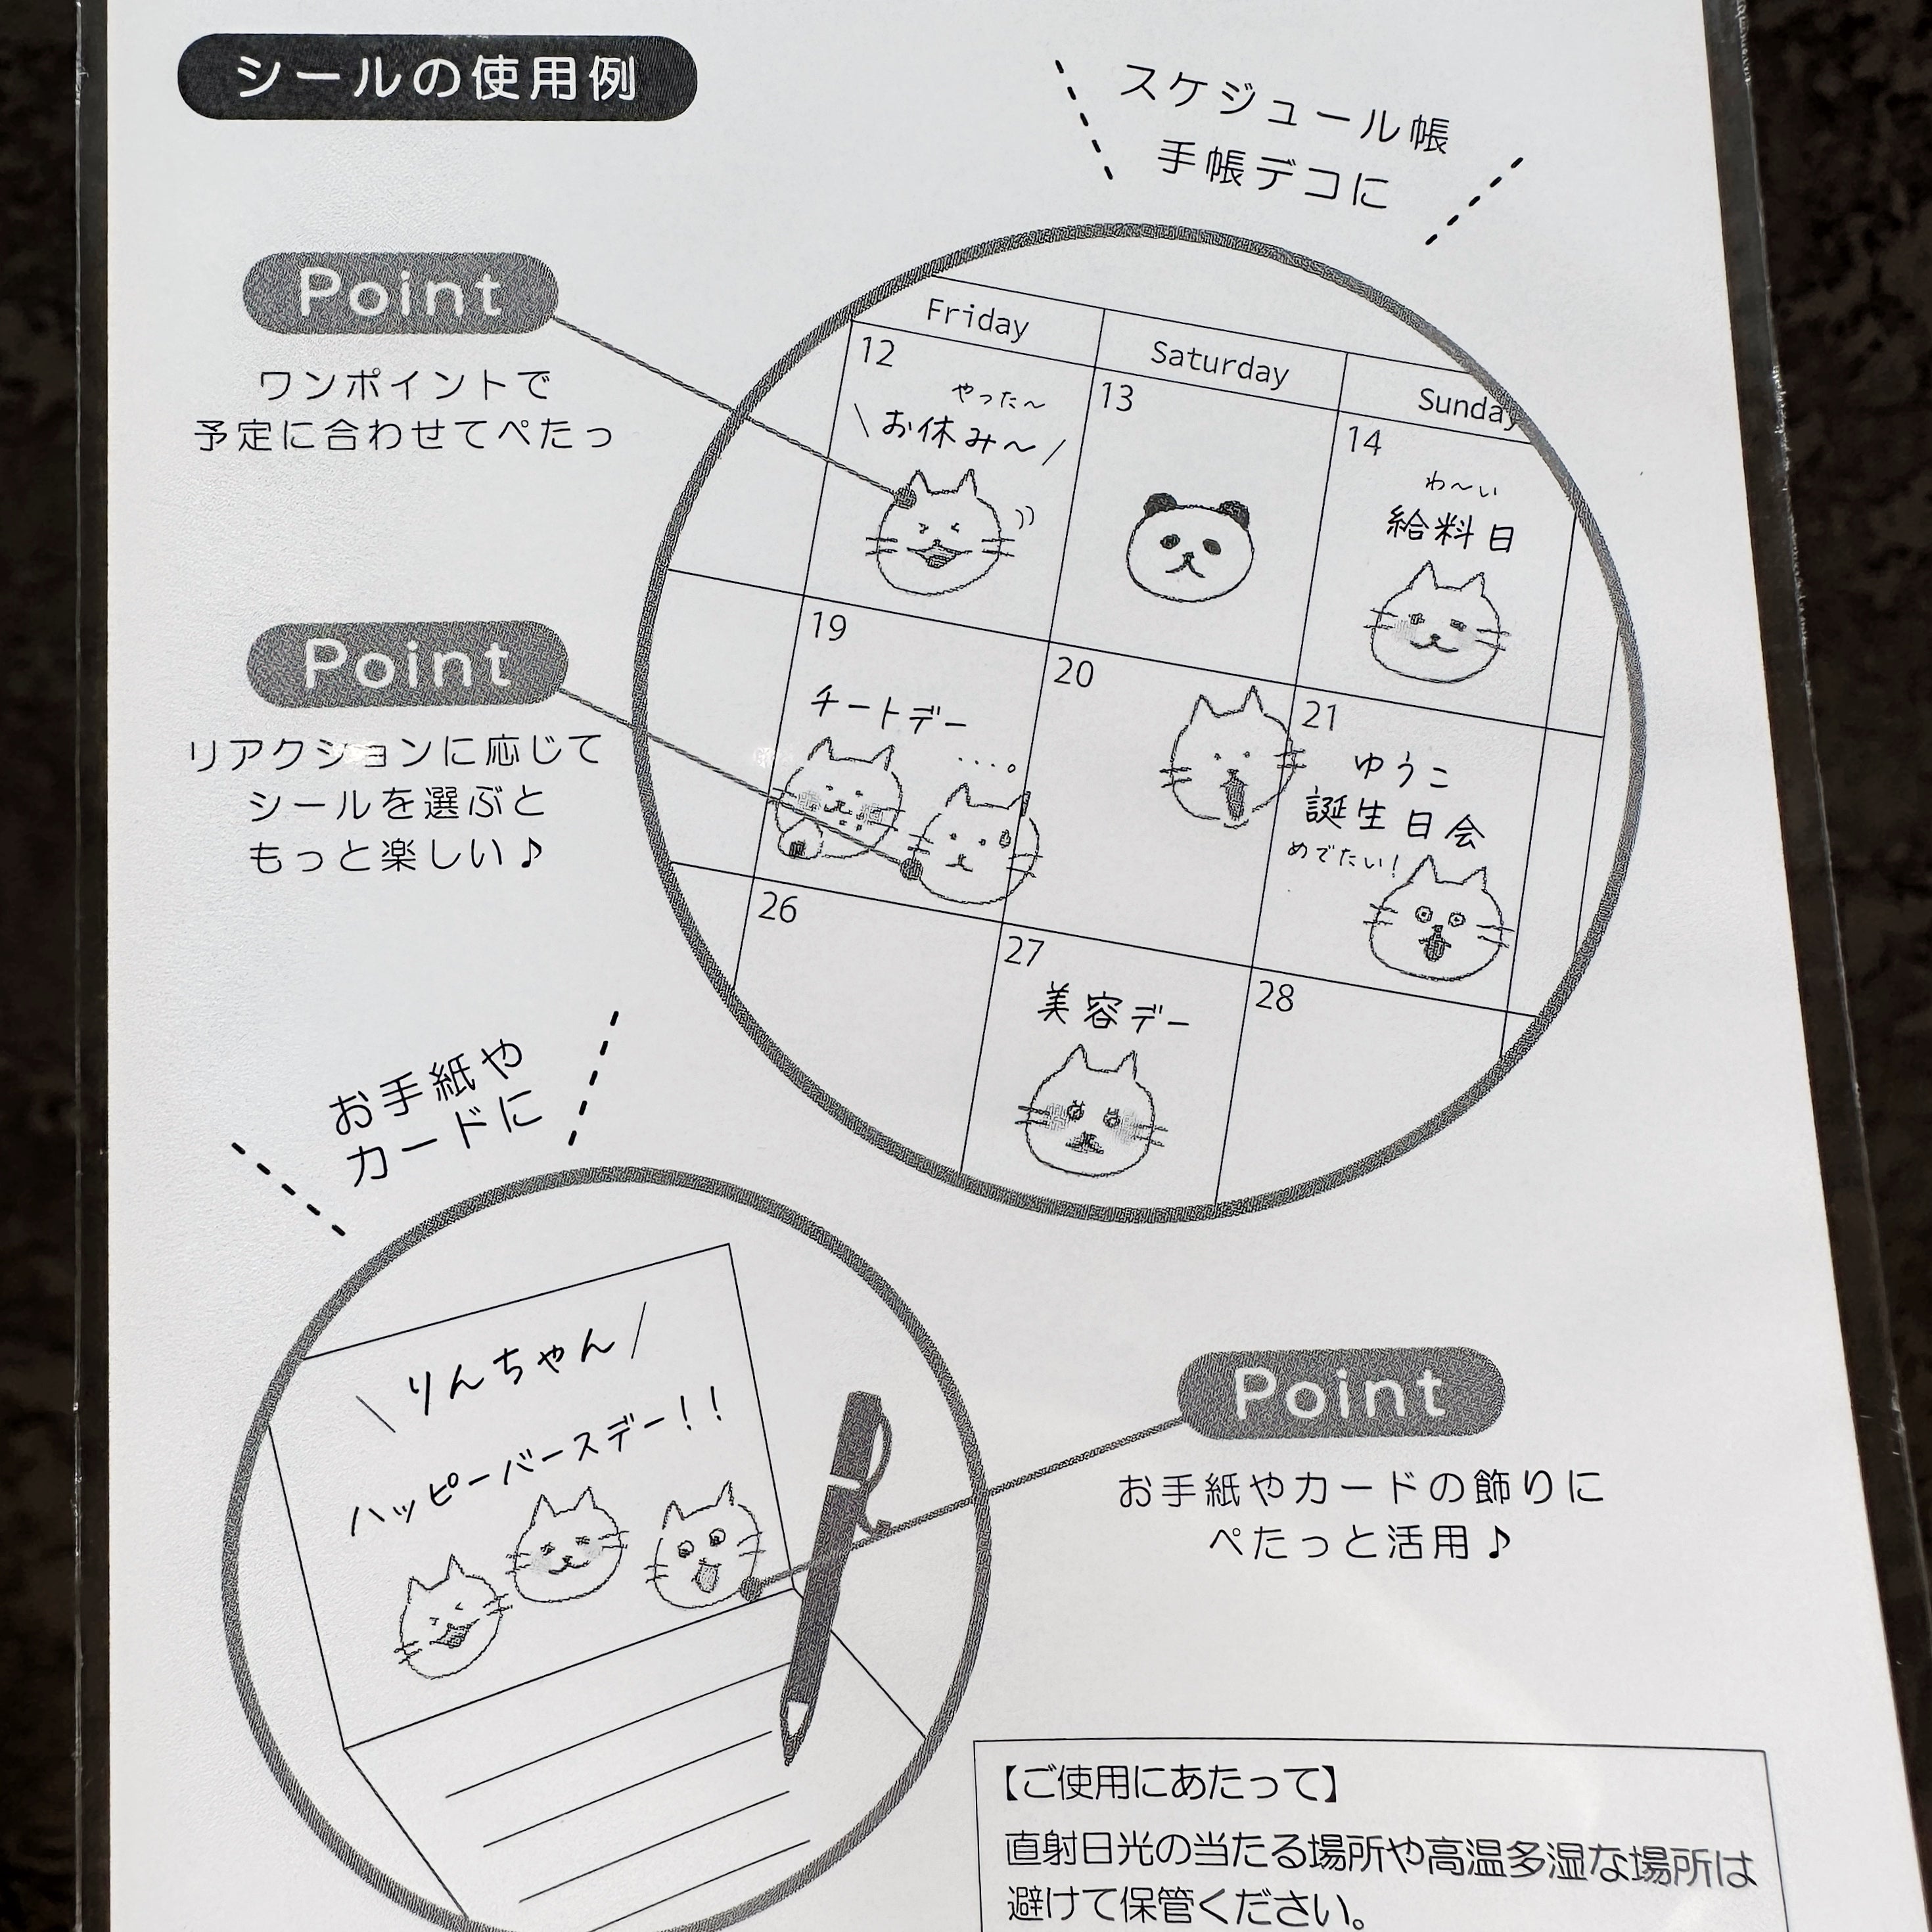 シールの使用例
スケジュール帳
手帳デコに
Point
ワンポイントで
予定に合わせてぺたっ
Point
リアクションに応じて
シールを選ぶと
もっと楽しい♪
Friday
Saturday
Sunday
12
やった〜
\お休み〜/
13
14
わ〜い
給料日
19
チートデー
...。
20
21
ゆうこ
誕生日会
めでたい!
26
27
美容デー
28
お手紙や
カードに
\りんちゃん/
ハッピーバースデー!!
Point
お手紙やカードの飾りに
ぺたっと活用♪
【ご使用にあたって】
直射日光の当たる場所や高温多湿な場所は
避けて保管ください。